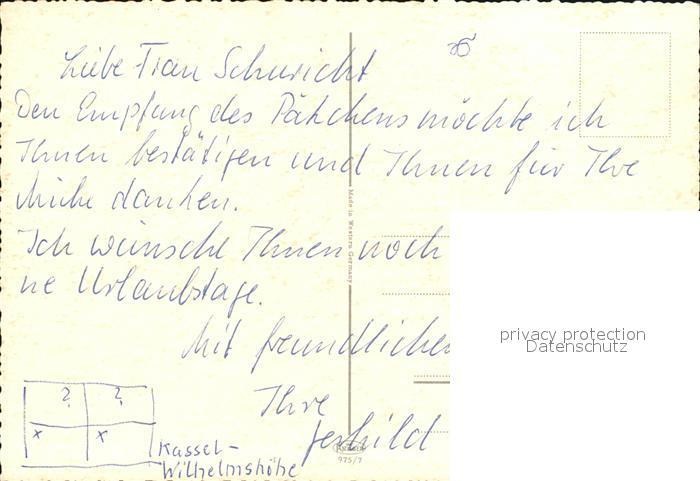 Liebe Frau Schuricht
Den Empfang des Päkchens möchte ich
Ihnen bestätigen und Ihnen für Ihre
Mühe danken.
Ich wünsche Ihnen noch
ne Urlaubstage.
Mit freundlichen
Ihre
? ?
x x
Kassel-
Wilhelmshöhe
Made in Western Germany
975/7
privacy protection
Datenschutz